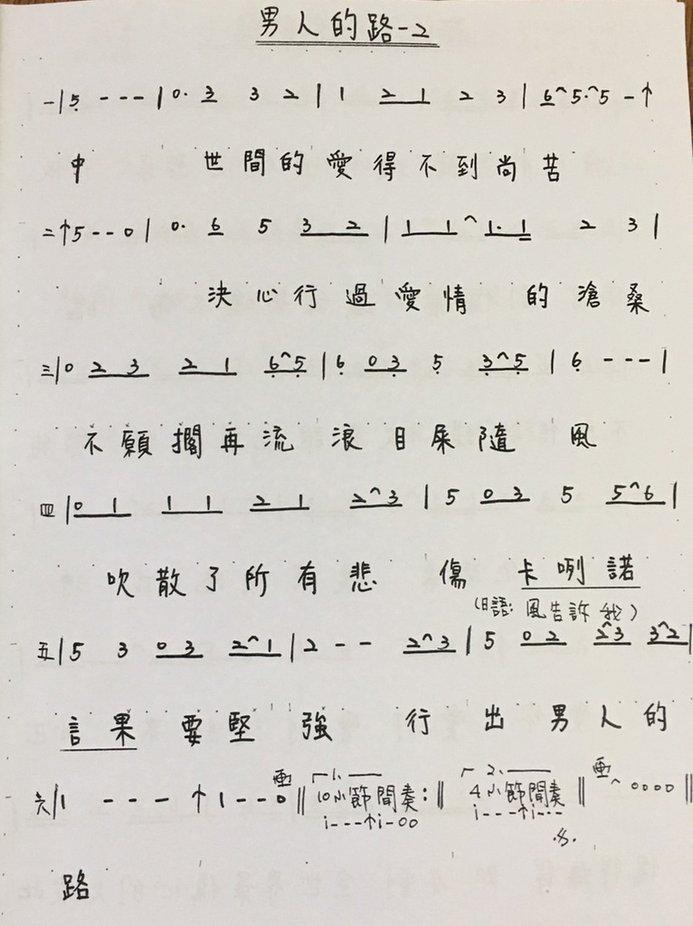 男人的路-2
一|5 - - - |0. 3 3 2 | 1 2 1 2 3 | 6^5.^5 - ↑
中 世間的愛得不到尚苦
二↑5 - - 0 | 0. 6 5 3 2 | 1 1^1.1 2 3 |
決心行過愛情 的滄桑
三|0 2 3 2 1 6^5 | 6 0 3 5 3^5 | 6 - - - |
不願擱再流浪目屎隨風
四|0 1 1 1 2 1 2^3 | 5 0 3 5 5^6 |
吹散了所有悲傷 卡咧諾
(日語:風告訴我)
五|5 3 0 3 2^1 | 2 - - 2^3 | 5 0 2 2^3 3^2 |
言果要堅強 行出男人的
六|1 - - - ↑ 1 - - 0 || 1. 10小節間奏:|| 2. 4小節間奏 || ^0000 ||
i---↑i-00 i---↑i---
路